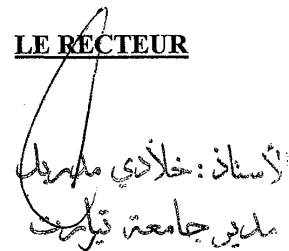 LE RECTEUR
الأستاذ : خلادي
مدير جامعة تيارت